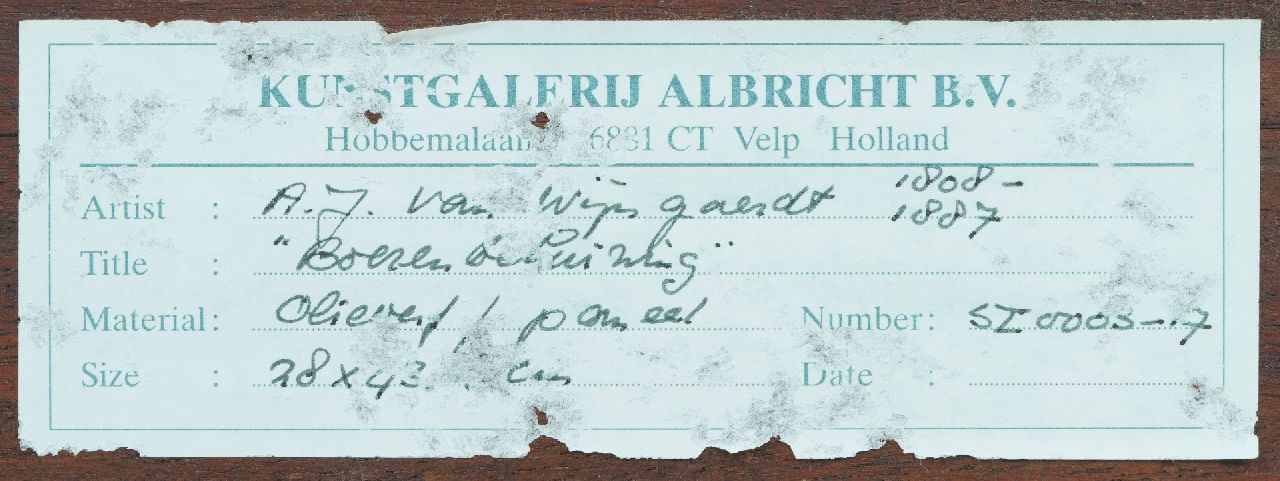 KUNSTGALERIJ ALBRICHT B.V.
Hobbemalaan 6881 CT Velp Holland
Artist : A.J. van Wijngaerdt 1808-1887
Title : "Boerenbehuizing"
Material: Olieverf / paneel
Number: SI0003-.7
Size : 28 x 43. cm
Date :